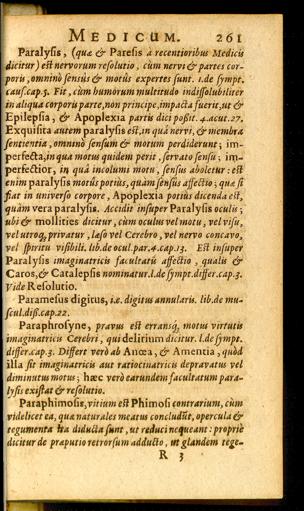 MEDICUM. 261
Paralysis, (quæ & Paresis à recentioribus Medicis
dicitur) est nervorum resolutio, cùm nervi & partes cor-
poris, omninò sensûs & motûs expertes sunt. 1. de sympt.
caus. cap. 5. Fit, cùm humorum multitudo indissolubiliter
in aliqua corporis parte, non principe, impacta fuerit, ut &
Epilepsia, & Apoplexia partis dici possit. 4. acut. 27.
Exquisita autem paralysis est, in quâ nervi, & membra
sentientia, omninò sensum & motum perdiderunt; im-
perfecta, in qua motus quidem perit, servato sensu; im-
perfectior, in quâ incolumi motu, sensus aboletur: est
enim paralysis motûs potiùs, quàm sensûs affectio; quæ si
fiat in universo corpore, Apoplexia potiùs dicenda est,
quàm vera paralysis. Accidit insuper Paralysis oculis;
ubi & mollities dicitur, cùm oculus vel motu, vel visu,
vel utroq; privatur, læso vel Cerebro, vel nervo concavo,
vel spiritu visibili. lib. de ocul. par. 4. cap. 13. Est insuper
Paralysis imaginatricis facultatis affectio, qualis &
Caros, & Catalepsis nominatur. l. de sympt. differ. cap. 3.
Vide Resolutio.
Paramesus digitus, i.e. digitus annularis. lib. de mu-
scul. diss. cap. 22.
Paraphrosyne, pravus est erransq; motus virtutis
imaginatricis Cerebri, qui delirium dicitur. l. de sympt.
differ. cap. 3. Differt verò ab Anœa, & Amentia, quòd
illa sit imaginatricis aut ratiocinatricis depravatus vel
diminutus motus; hæc verò earundem facultatum para-
lysis existat & resolutio.
Paraphimosis, vitium est Phimosi contrarium, cùm
videlicet ea, quæ naturales meatus concludūt, opercula &
tegumenta ita diducta sunt, ut reduci nequeant: propriè
dicitur de præputio retrorsum adducto, ut glandem tege-
R 3